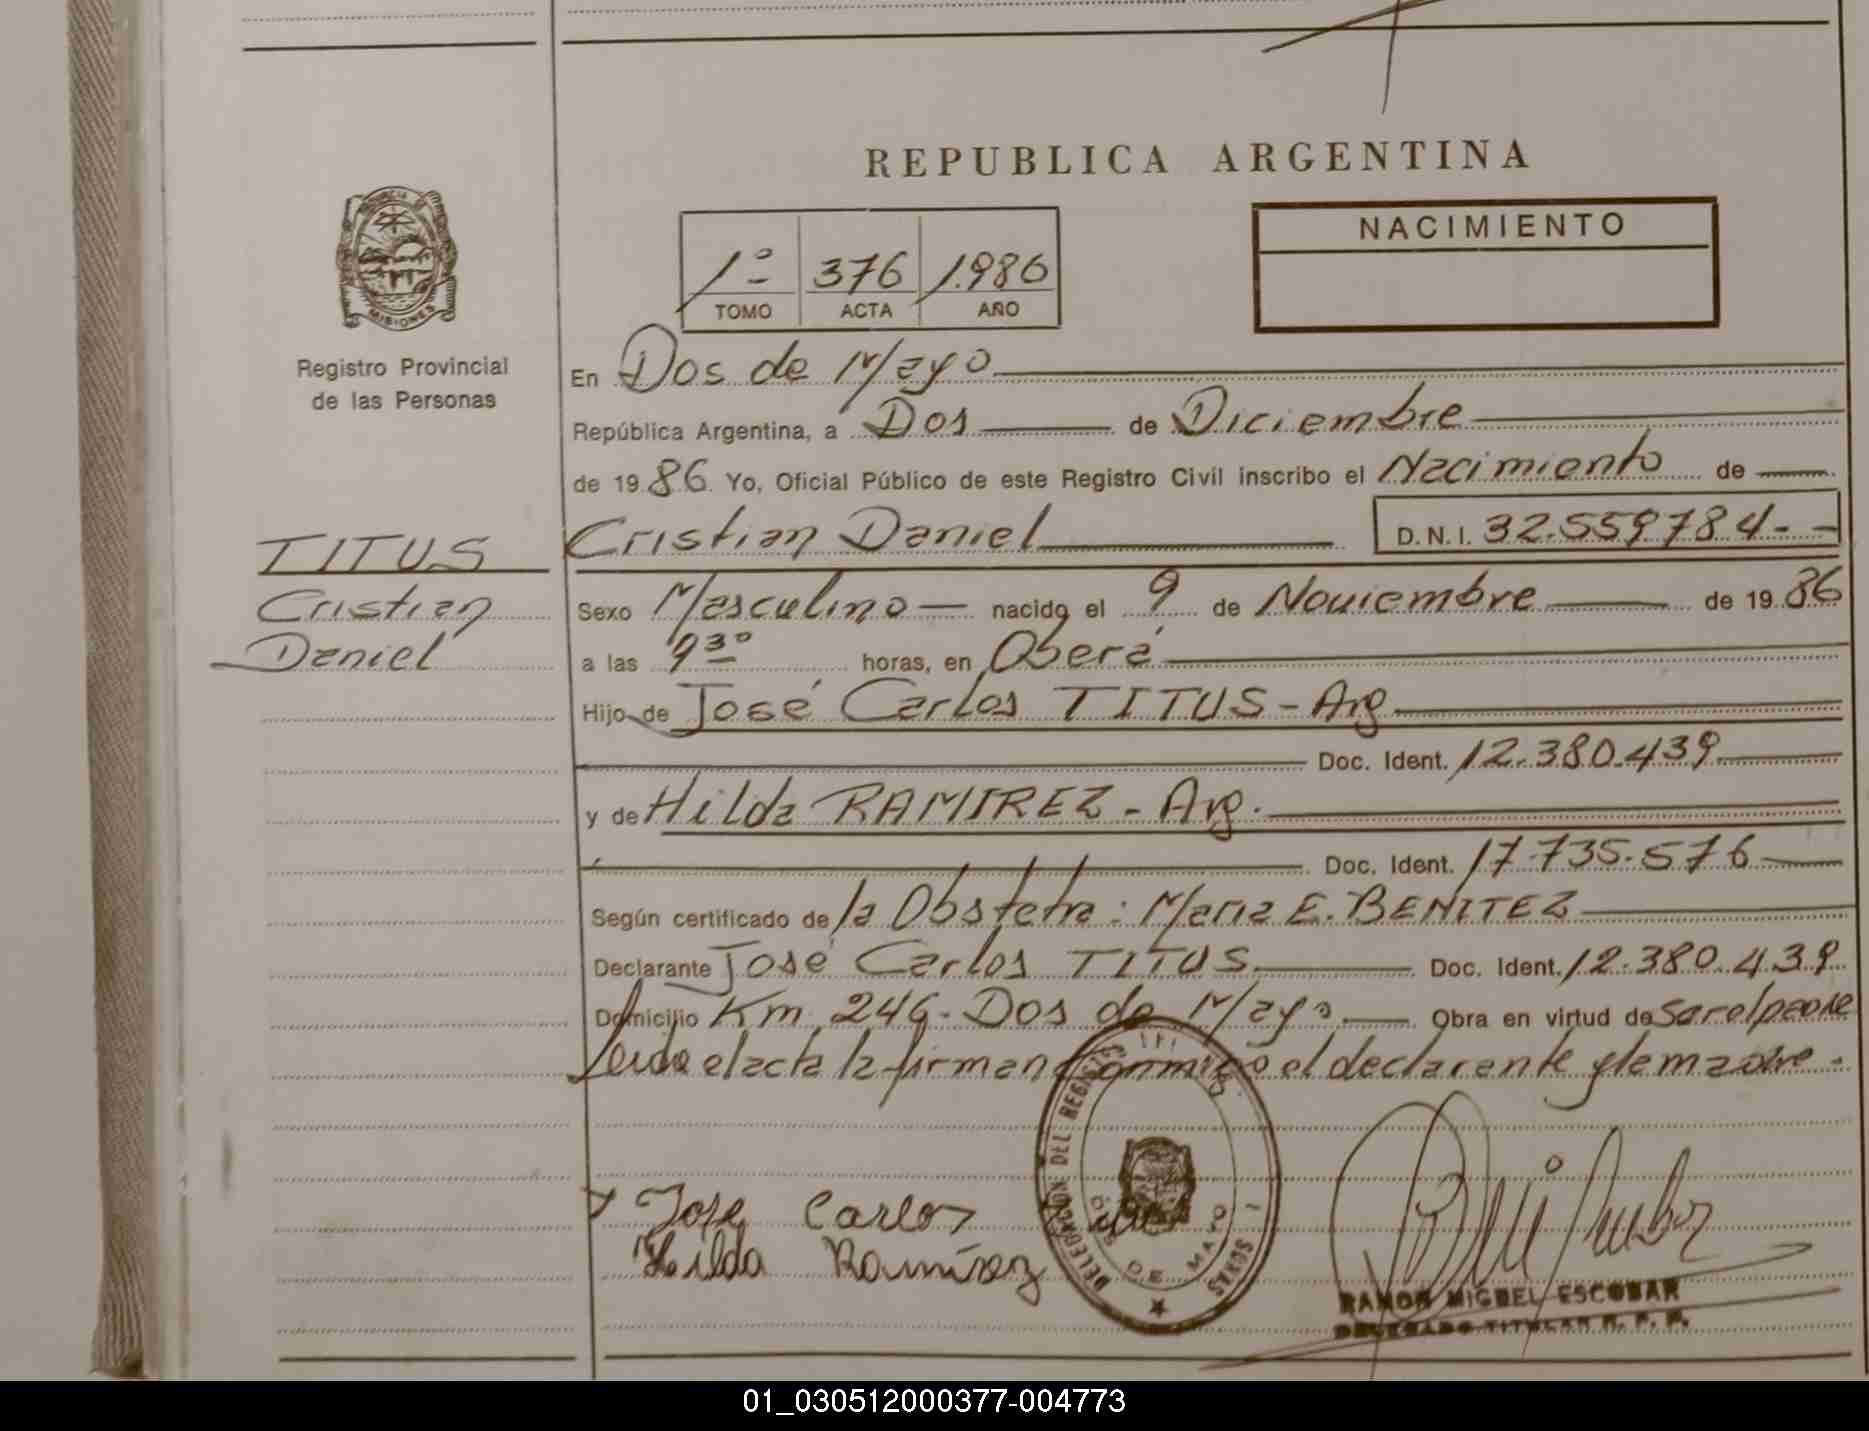 REPUBLICA ARGENTINA
NACIMIENTO
1º 376 1.986
TOMO ACTA AÑO
MISIONES
Registro Provincial
de las Personas
En Dos de Mayo
República Argentina, a Dos de Diciembre
de 19 86. Yo, Oficial Público de este Registro Civil inscribo el Nacimiento de
Cristian Daniel D.N.I. 32.559784-
TITUS
Cristian
Daniel
Sexo Masculino nacido el 9 de Noviembre de 19 86
a las 9 30 horas, en Oberá
Hijo de José Carlos TITUS - Arg
Doc. Ident. 12.380.439
y de Hilda RAMIREZ - Arg.
Doc. Ident. 17.735.576
Según certificado de la Obstetra: Maria E. BENITEZ
Declarante José Carlos TITUS Doc. Ident. 12.380.439
Domicilio Km 246 - Dos de Mayo Obra en virtud de ser el padre
Leida el acta la firman conmigo el declarante y la madre.
DELEGACION DEL REGISTRO
DOS DE MAYO
Jose Carlos
Hilda Ramírez
RAMON MIGUEL ESCOBAR
DELEGADO TITULAR R. P. P.
01_030512000377-004773